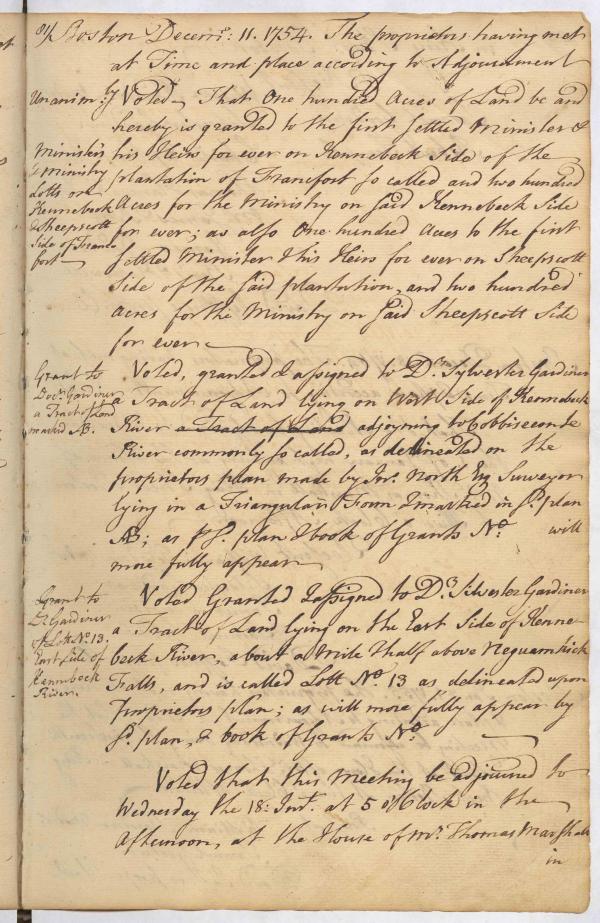 81/ Boston Decemr: 11. 1754. The proprietors having met
at Time and place according to Adjournment
Unanim:ly Voted That One hundred Acres of Land be and
hereby is granted to the first settled Minister &
his Heirs for ever on Kennebeck Side of the
plantation of Francfort so called and two hundred
Acres for the Ministry on said Kennebeck Side
for ever; as also One hundred Acres to the first
settled Minister & his Heirs for ever on Sheepscott
Side of the said plantation, and two hundred
Acres for the Ministry on said Sheepscott Side
for ever
Ministers
& Ministry
Lotts on
Kennebeck
& Sheepscott
Side of Franc
fort
Voted, granted & assigned to Dr. Sylvester Gardiner
a Tract of Land lying on West Side of Kennebeck
River a Tract of Land adjoyning to Cobbiseconte
River commonly so called, as delineated on the
proprietors plan made by Jno. North Esq Surveyor
lying in a Triangular Form & marked in sd. plan
AB; as pr sd. plan & book of Grants No. will
more fully appear
Grant to
Docr. Gardiner
a Tract of Land
marked AB.
Voted Granted & assigned to Dr. Silvester Gardiner
a Tract of Land lying on the East Side of Kenne
beck River, about a Mile & half above Neguamkick
Falls, and is called Lott No. 13 as delineated upon
proprietors plan; as will more fully appear by
sd. plan, & book of Grants No.
Grant to
Dr Gardiner
of Lott No. 13.
East Side of
Kennebeck
River.
Voted that this Meeting be adjourned to
Wednesday the 18: Inst. at 5 o'Clock in the
Afternoon, at the House of Mr. Thomas Marshall
in